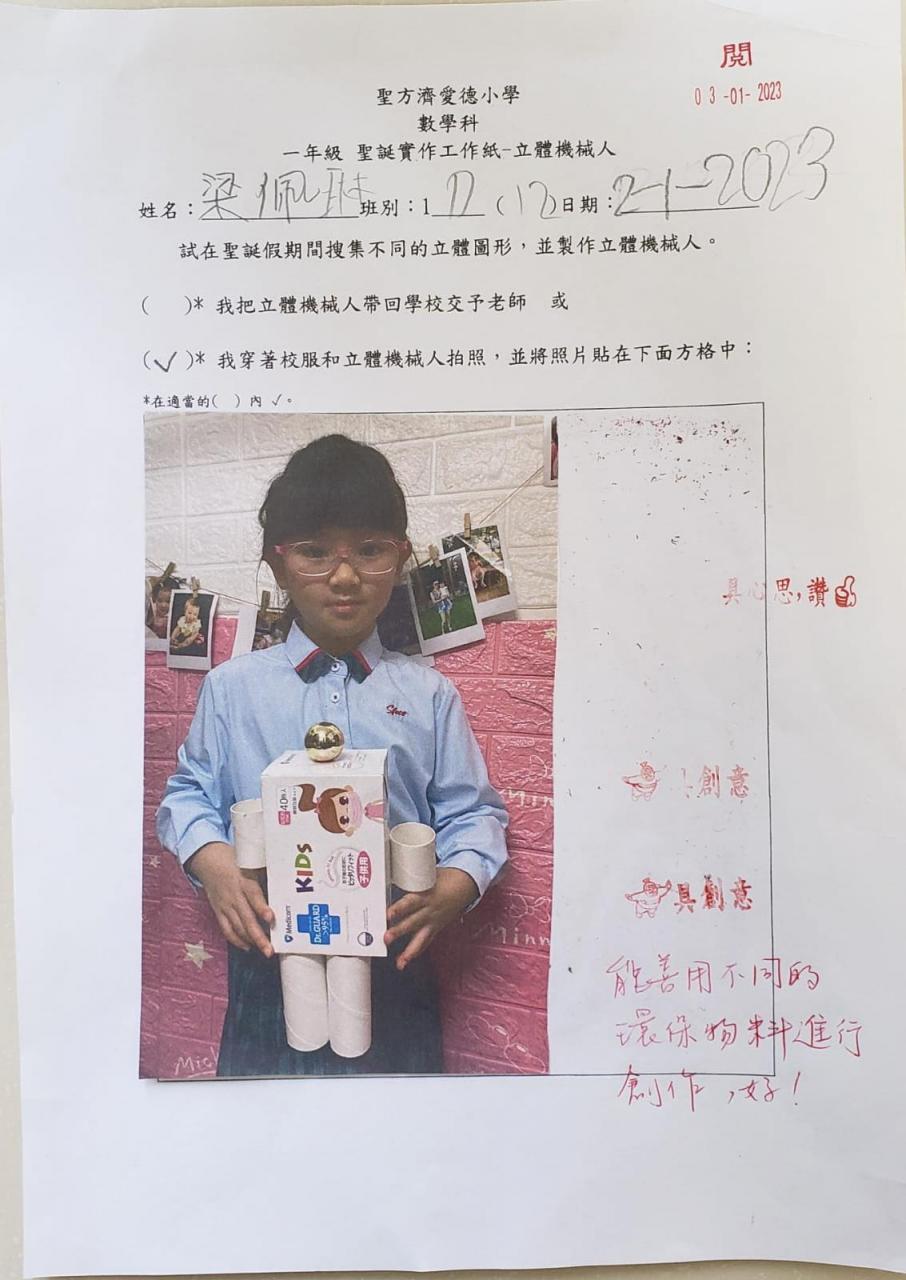 閱
03-01-2023
聖方濟愛德小學
數學科
一年級 聖誕實作工作紙-立體機械人
姓名：梁佩琳 班別：1D (12) 日期：2-1-2023
試在聖誕假期間搜集不同的立體圖形，並製作立體機械人。
(   )* 我把立體機械人帶回學校交予老師　或
(✓)* 我穿著校服和立體機械人拍照，並將照片貼在下面方格中：
*在適當的(   ) 內 ✓。
具心思，讚
Sfacs
40枚入
KIDs
子供用
Medicom
Dr.GUARD
>95%
具創意
具創意
Minn
Mic
能善用不同的
環保物料進行
創作，好！